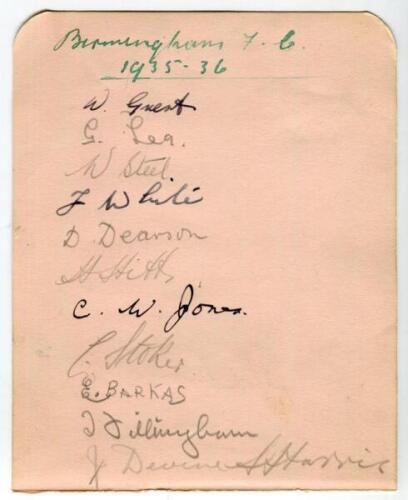 Birmingham F. C.
1935-36
W. Guest
G. Lea.
W Steel
F White
D. Dearson
H Hibbs
C. W. Jones.
L. Stoker
E. BARKAS
J Fillingham
J Devine S Harris